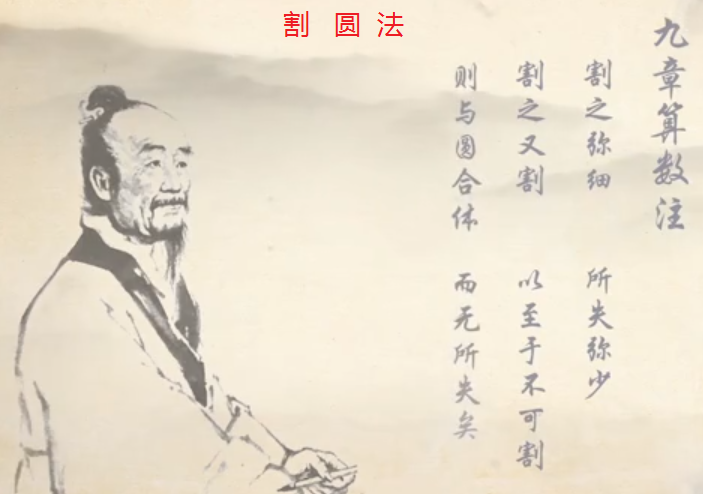 割圆法
九章算数注
割之弥细 所失弥少
割之又割 以至于不可割
则与圆合体 而无所失矣